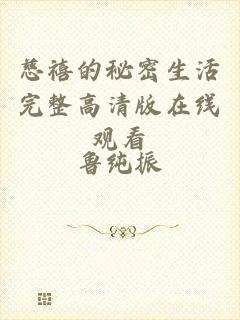 慈禧的秘密生活
完整高清版在线
观看
鲁纯振